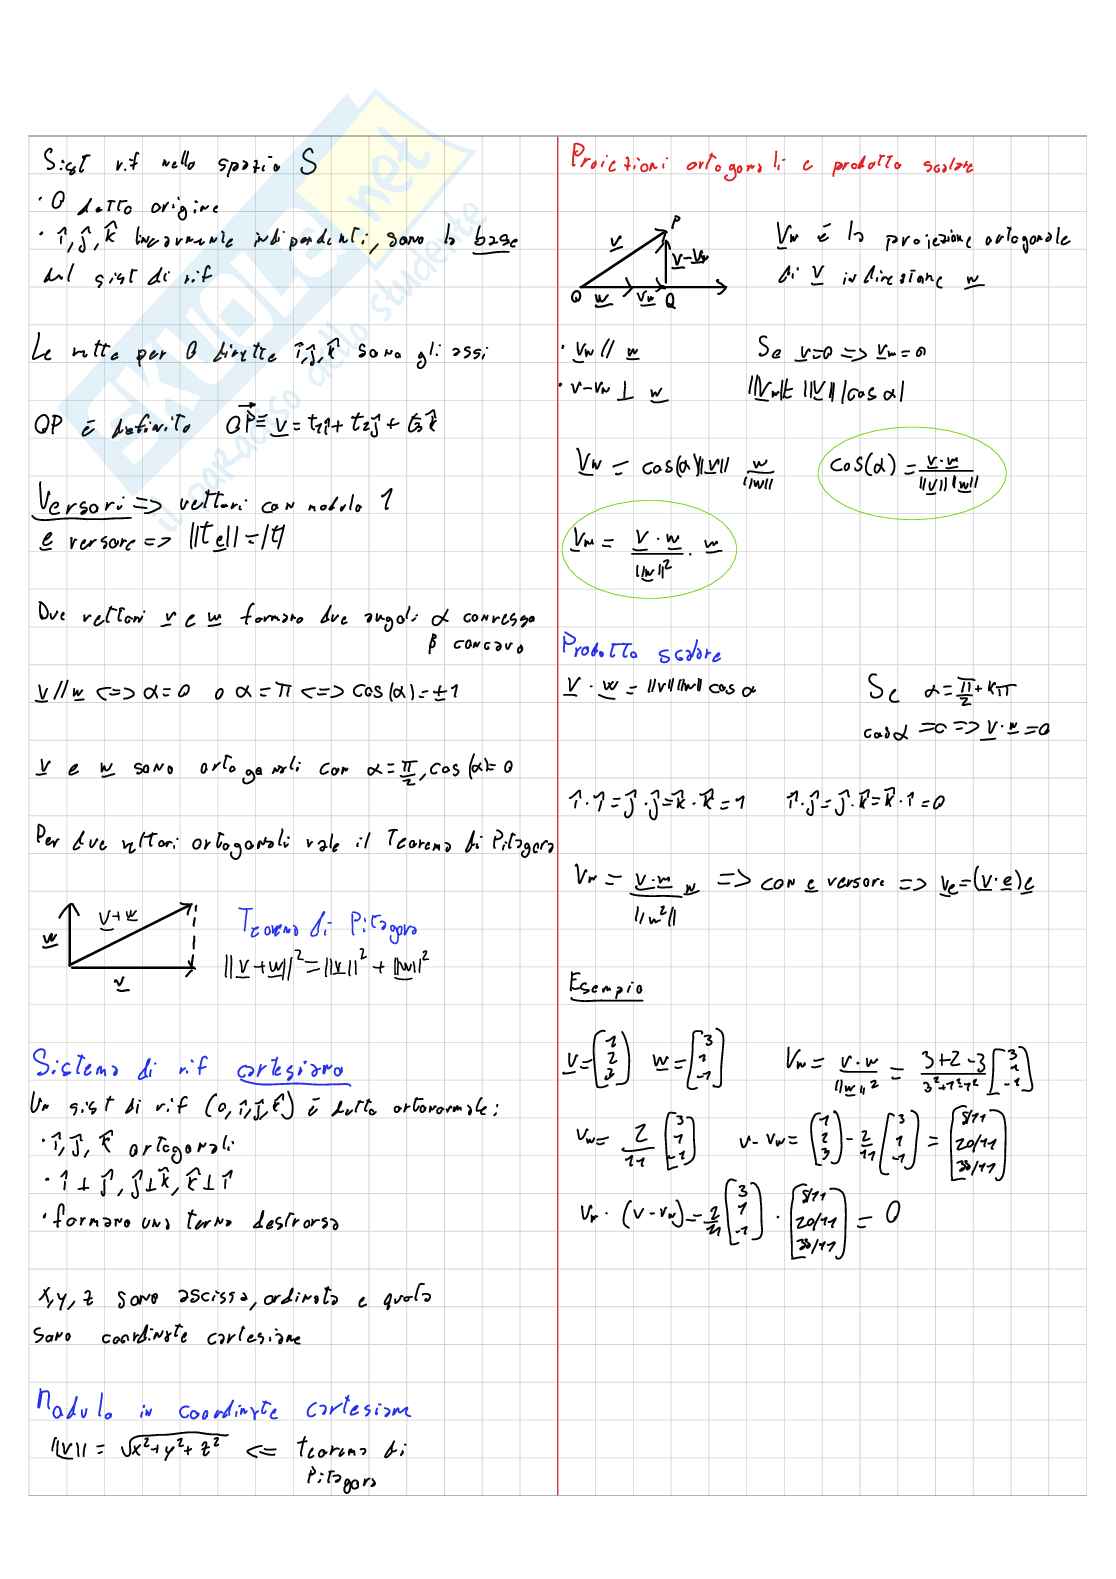 Sist rif nello spazio S
• O detto origine
• î, ĵ, k̂ linearmente indipendenti, sono la base
del sist di rif
Le rette per O dirette î, ĵ, k̂ sono gli assi
OP è definito OP ≡ v = t₁î + t₂ĵ + t₃k̂
Versori => vettori con modulo 1
e versore => ||t e|| = |t|
Due vettori v e w formano due angoli α convesso
β concavo
v // w <=> α = 0 o α = π <=> cos(α) = ±1
v e w sono ortogonali con α = π/2, cos(α) = 0
Per due vettori ortogonali vale il Teorema di Pitagora
w v+w v
Teorema di Pitagora
||v + w||² = ||v||² + ||w||²
Sistema di rif cartesiano
Un sist di rif (O, î, ĵ, k̂) è detto ortonormale:
• î, ĵ, k̂ ortogonali
• î ⊥ ĵ, ĵ ⊥ k̂, k̂ ⊥ î
• formano una terna destrorsa
x, y, z sono ascissa, ordinata e quota
sono coordinate cartesiane
Modulo in coordinate cartesiane
||v|| = √x² + y² + z² <= teorema di
Pitagora
Proiezioni ortogonali e prodotto scalare
P v v-vw O w vw Q
vw è la proiezione ortogonale
di v in direzione w
• vw // w Se v = 0 => vw = 0
• v - vw ⊥ w ||vw|| = ||v|| |cos α|
vw = cos(α) ||v|| w/||w|| cos(α) = v · w / ||v|| ||w||
vw = v · w / ||w||² · w
Prodotto scalare
v · w = ||v|| ||w|| cos α Se α = π/2 + kπ
cos α = 0 => v · w = 0
î · î = ĵ · ĵ = k̂ · k̂ = 1 î · ĵ = ĵ · k̂ = k̂ · î = 0
vw = v · w / ||w²|| w => con e versore => ve = (v · e) e
Esempio
v = [1 2 3] w = [3 1 -1] vw = v · w / ||w||² = 3+2-3 / 3²+1²+1² [3 1 -1]
vw = 2/11 [3 1 -1] v - vw = [1 2 3] - 2/11 [3 1 -1] = [5/11 20/11 35/11]
vw · (v - vw) = 2/11 [3 1 -1] · [5/11 20/11 35/11] = 0
SKUOLA.net
il paradiso dello studente